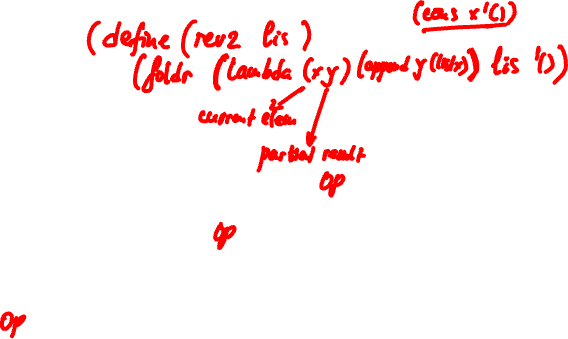 (cons x '())
(define (rev2 lis)
(foldr (lambda (x y) (append y (list x))) lis '())
current elem
partial result
op
op
op